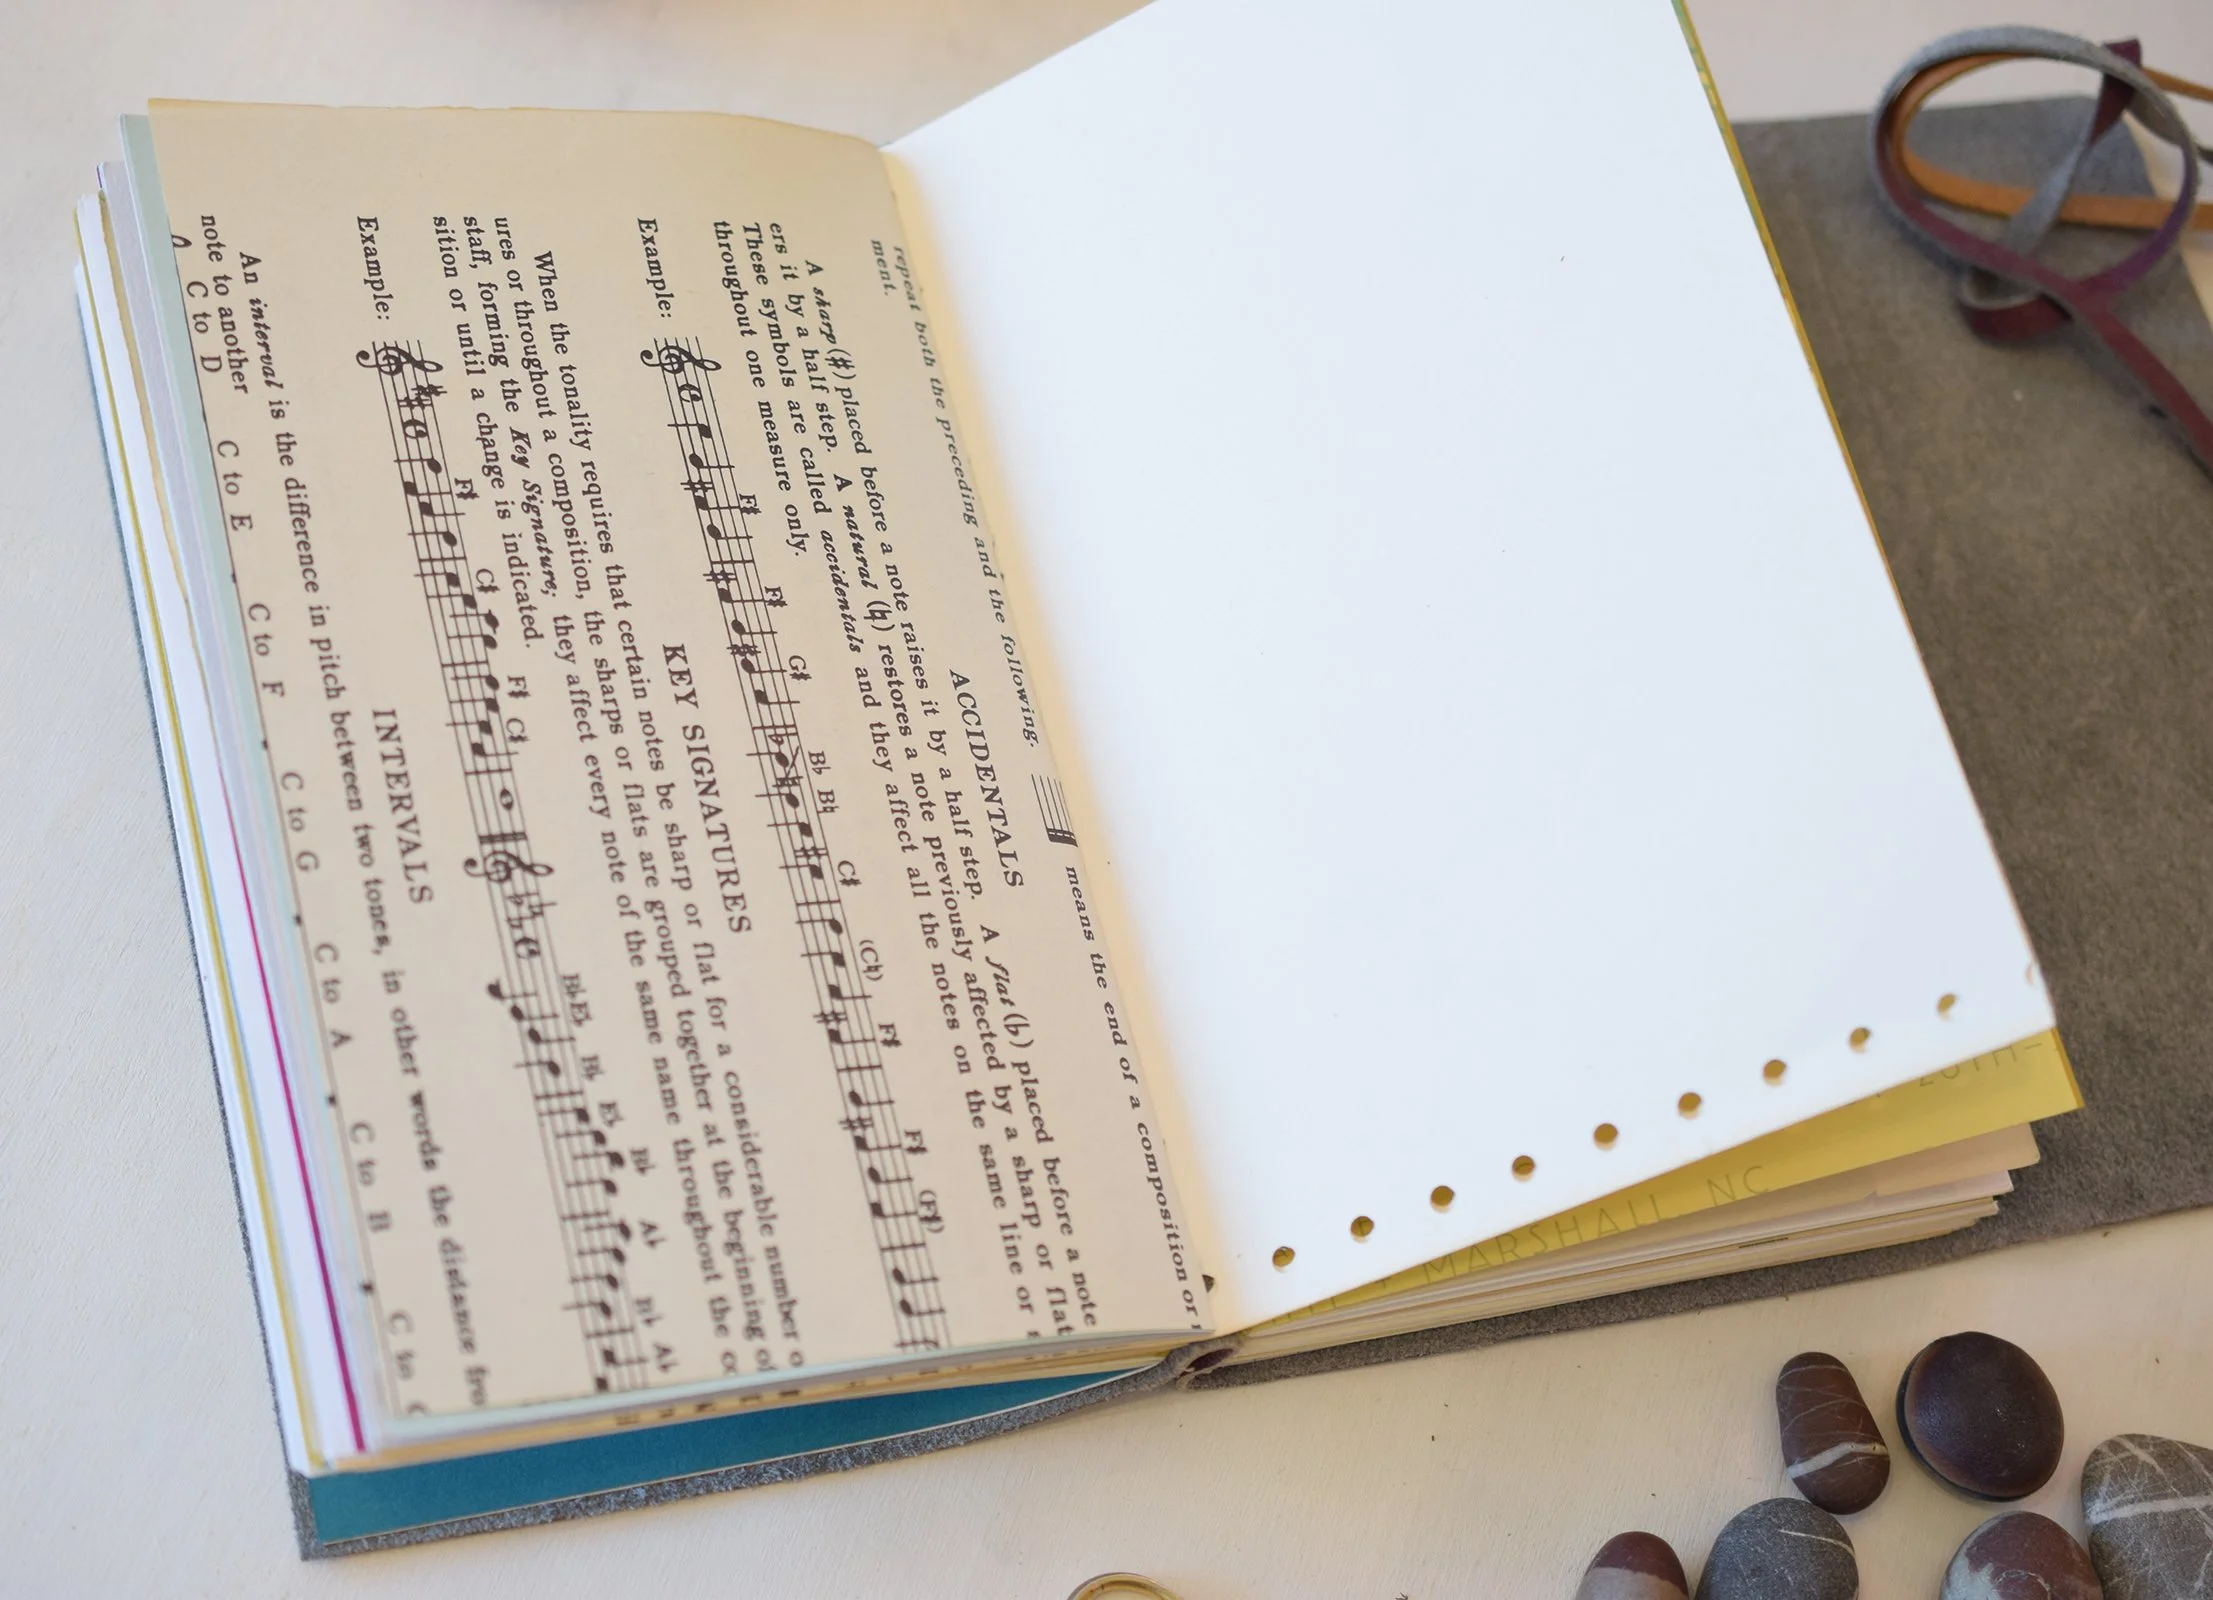 repeat both the preceding and the following. means the end of a composition or
ment.
ACCIDENTALS
A sharp (♯) placed before a note raises it by a half step. A flat (♭) placed before a note
ers it by a half step. A natural (♮) restores a note previously affected by a sharp or flat
These symbols are called accidentals and they affect all the notes on the same line or
throughout one measure only.
F♯ F♯ G♯ B♭ B♮ C♯ (C♮) F♯ F♯ (F♯)
Example:
KEY SIGNATURES
When the tonality requires that certain notes be sharp or flat for a considerable number
ures or throughout a composition, the sharps or flats are grouped together at the beginning of
staff, forming the Key Signature; they affect every note of the same name throughout the
sition or until a change is indicated.
F♯ C♯ F♯ C♯ B♭ E♭ B♭ E♭ B♭ A♭ B♭ A♭
Example:
INTERVALS
An interval is the difference in pitch between two tones, in other words the distance
note to another
C to D C to E C to F C to G C to A C to B C to
MARSHALL, NC